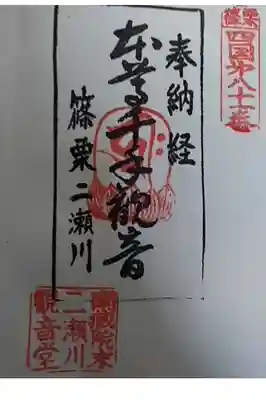 篠栗
四国第八十一番
奉納経
本尊千手観音
篠栗二瀬川
二瀬川
観音堂